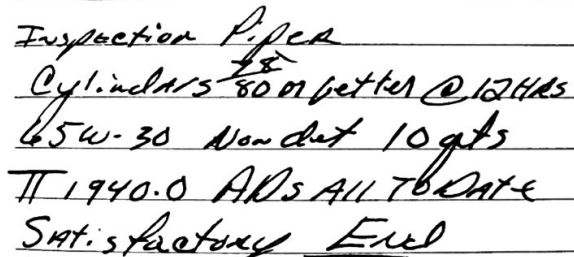 Inspection Piper
Cylinders 78/80 or better @ 12 HRS
65W-30 Nondet 10 qts
TT 1940.0 ADs All To Date
Satisfactory End